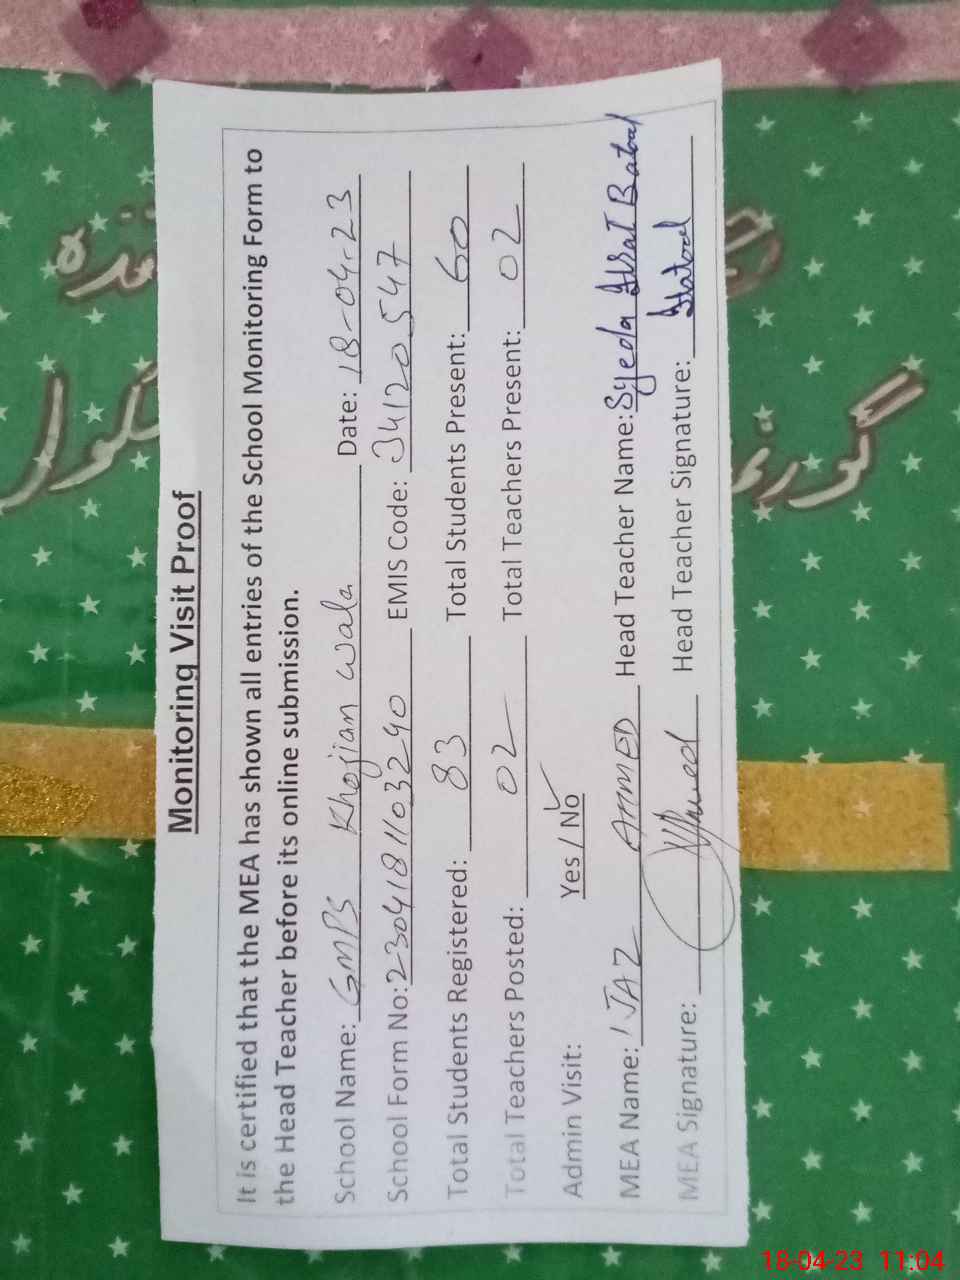 Monitoring Visit Proof
It is certified that the MEA has shown all entries of the School Monitoring Form to
the Head Teacher before its online submission.
School Name: GMPS Khojian wala Date: 18-04-23
School Form No: 2304181103240 EMIS Code: 34120547
Total Students Registered: 83 Total Students Present: 60
Total Teachers Posted: 02 Total Teachers Present: 02
Admin Visit: Yes / No ✓
MEA Name: IJAZ AHMED Head Teacher Name: Syeda Batool
MEA Signature: Head Teacher Signature: Batool
18-04-23 11:04